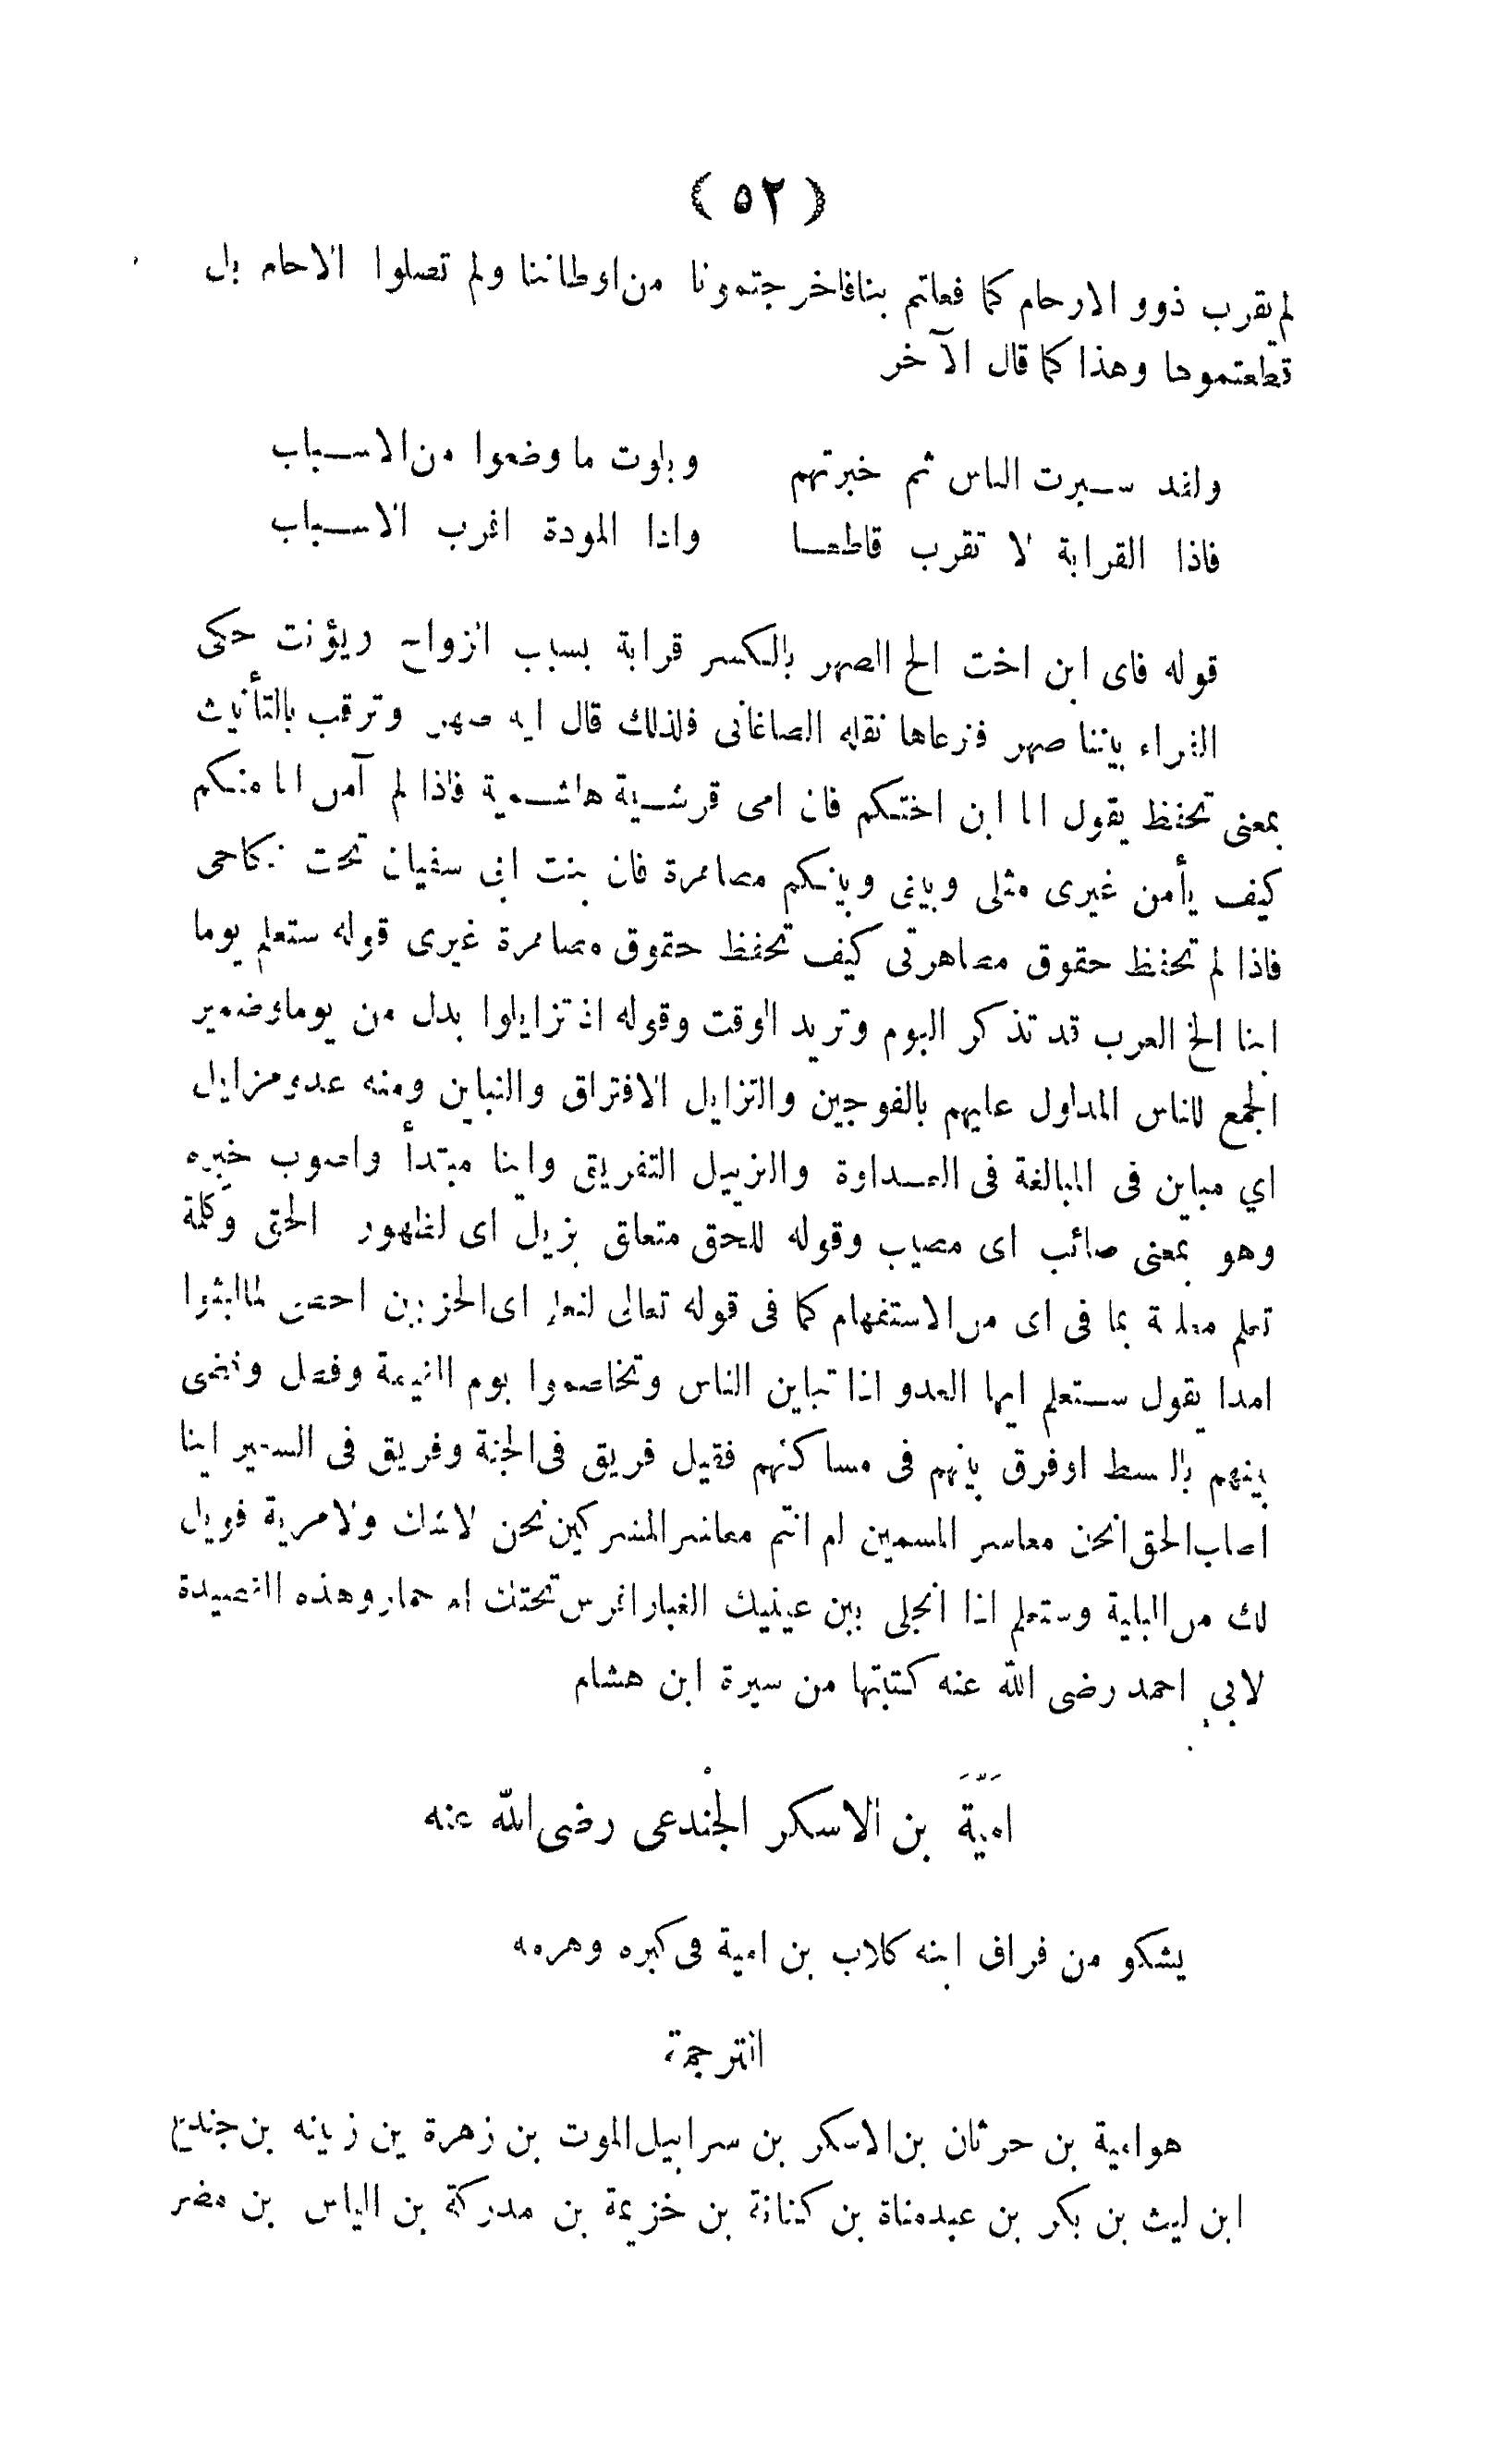 ( ٥٢ )
لم يقرب ذوو الارحام كما فعلتم بنا فاخرجتمونا من اوطاننا ولم تصلوا الارحام بل
قطعتموها وهذا كما قال الآخر
ولقد سبرت الناس ثم خبرتهم وبلوت ما وضعوا من الاسباب
فاذا القرابة لا تقرب قاطعا واذا المودة اقرب الاسباب
قوله فاى ابن اخت الخ الصهر بالكسر قرابة بسبب الزواج ويؤنث حكى
الفراء بيننا صهر فنرعاها نقله الصاغانى فلذلك قال اية صهر وترقب بالتأنيث
بمعنى تحفظ يقول انا ابن اختكم فان امى قرشية هاشمية فاذا لم آمن انا منكم
كيف يأمن غيرى مثلى وبينى وبينكم مصاهرة فان بنت ابى سفيان تحت نكاحى
فاذا لم تحفظ حقوق مصاهرتى كيف تحفظ حقوق مصاهرة غيرى قوله ستعلم يوما
اينا الخ العرب قد تذكر اليوم وتريد الوقت وقوله اذ تزايلوا بدل من يوما وضمير
الجمع للناس المدلول عليهم بالفوجين والتزايل الافتراق والتباين ومنه عدو مزايل
اي مباين فى المبالغة فى العداوة والتزييل التفريق واينا مبتدأ واصوب خبره
وهو بمعنى صائب اى مصيب وقوله للحق متعلق بزيل اى لظهور الحق وكلمة
تعلم معلقة بما فى اى من الاستفهام كما فى قوله تعالى لنعلم اى الحزبين احصى لما لبثوا
امدا يقول ستعلم ايها العدو اذا تباين الناس وتخاصموا يوم القيمة وفصل وقضى
بينهم بالقسط اوفرق بينهم فى مساكنهم فقيل فريق فى الجنة وفريق فى السعير اينا
اصاب الحق انحن معاشر المسلمين ام انتم معاشر المشركين نحن لاشك ولا مرية فويل
لك من البلية وستعلم اذا انجلى بين عينيك الغبار افرس تحتك ام حمار وهذه القصيدة
لابي احمد رضى الله عنه كتبتها من سيرة ابن هشام
اميَّةَ بن الاسكر الجنْدعى رضى الله عنه
يشكو من فراق ابنه كلاب بن امية فى كبره وهرمه
الترجمة
هو امية بن حرثان بن الاسكر بن سرابيل الموت بن زهرة بن زبينه بن جندع
ابن ليث بن بكر بن عبد مناة بن كنانة بن خزيمة بن مدركة بن الياس بن مضر